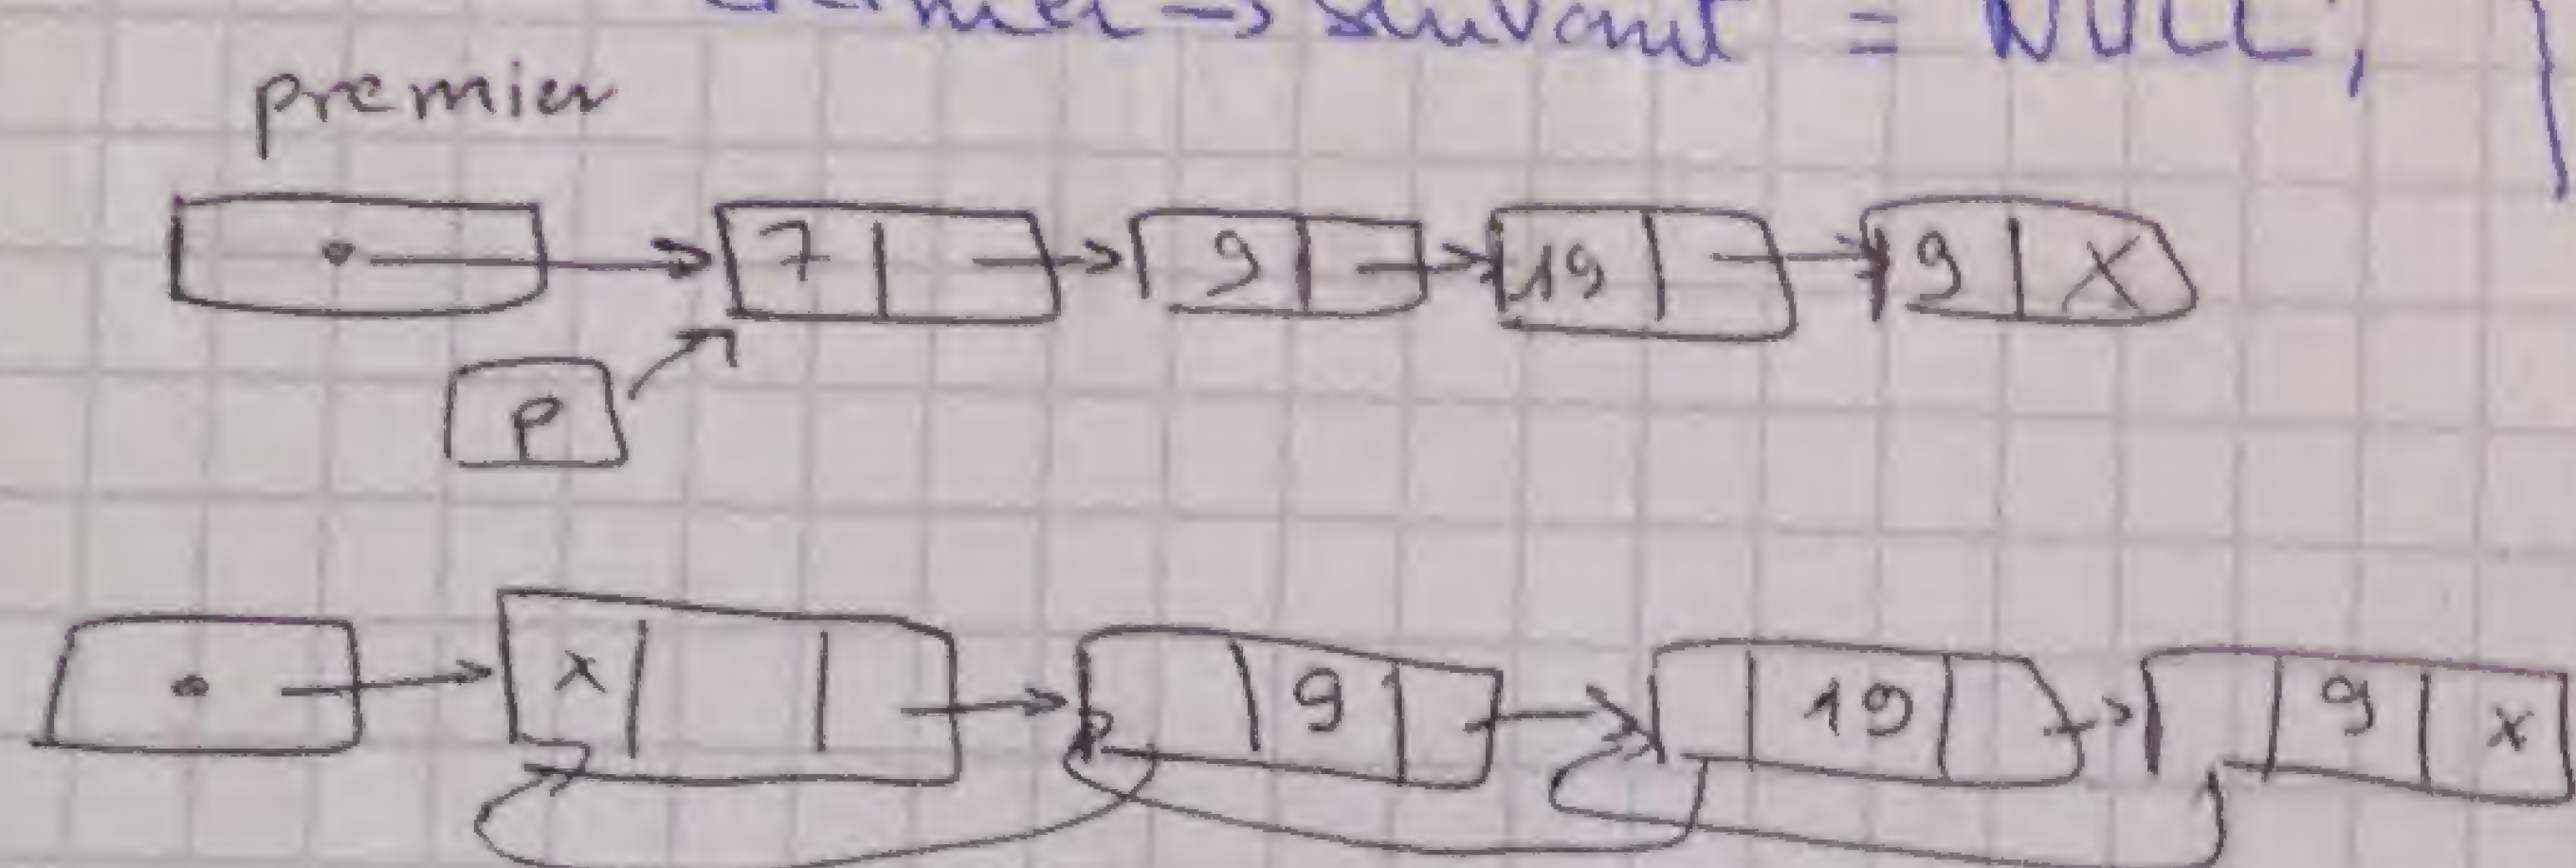 → suivant = NULL;
premier
7 9 19 9 X
P
x 9 19 9 x